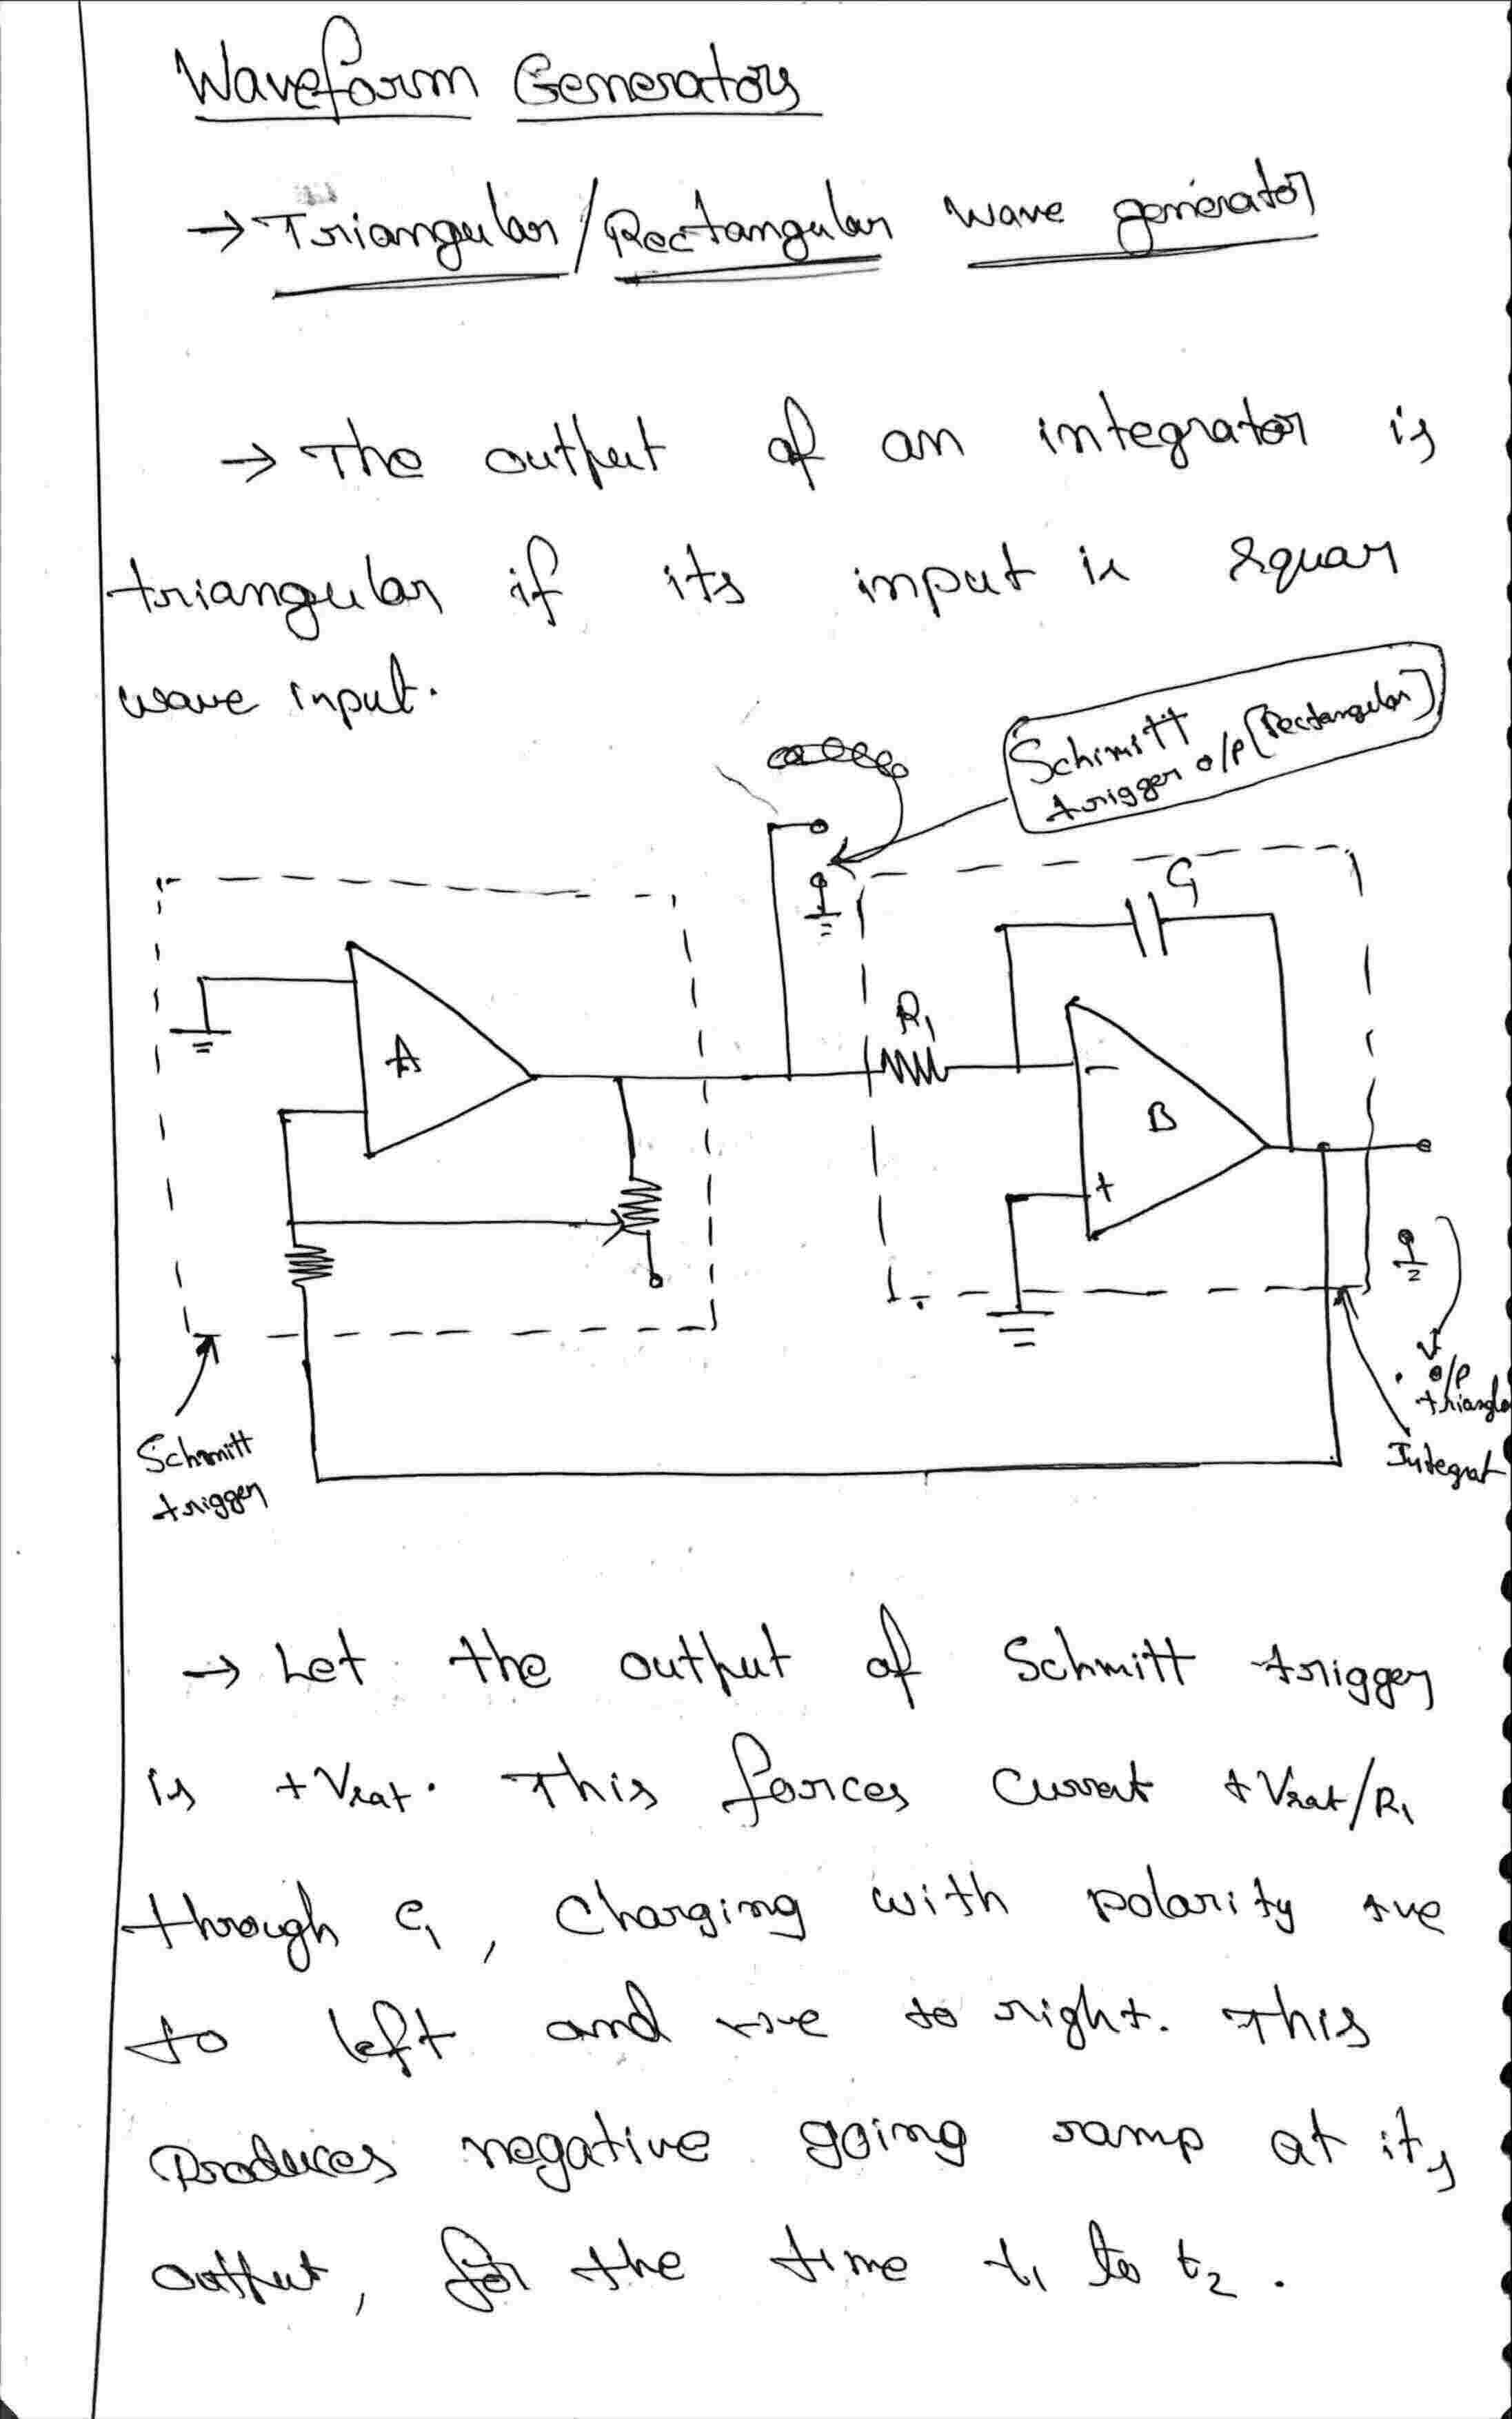 Waveform Generators
→ Triangular/Rectangular wave generator
→ The output of an integrator is
triangular if its input is squar
wave input.
Schimitt
trigger o/p [Rectangular]
C1
R1
A
−
B
+
Schmitt
trigger
o/p
triangla
Integrat
→ Let the output of Schmitt trigger
is +Vsat. This forces current +Vsat/R1
through C1, Charging with polarity +ve
to left and -ve to right. This
Produces negative going ramp at its
output, for the time t1 to t2.